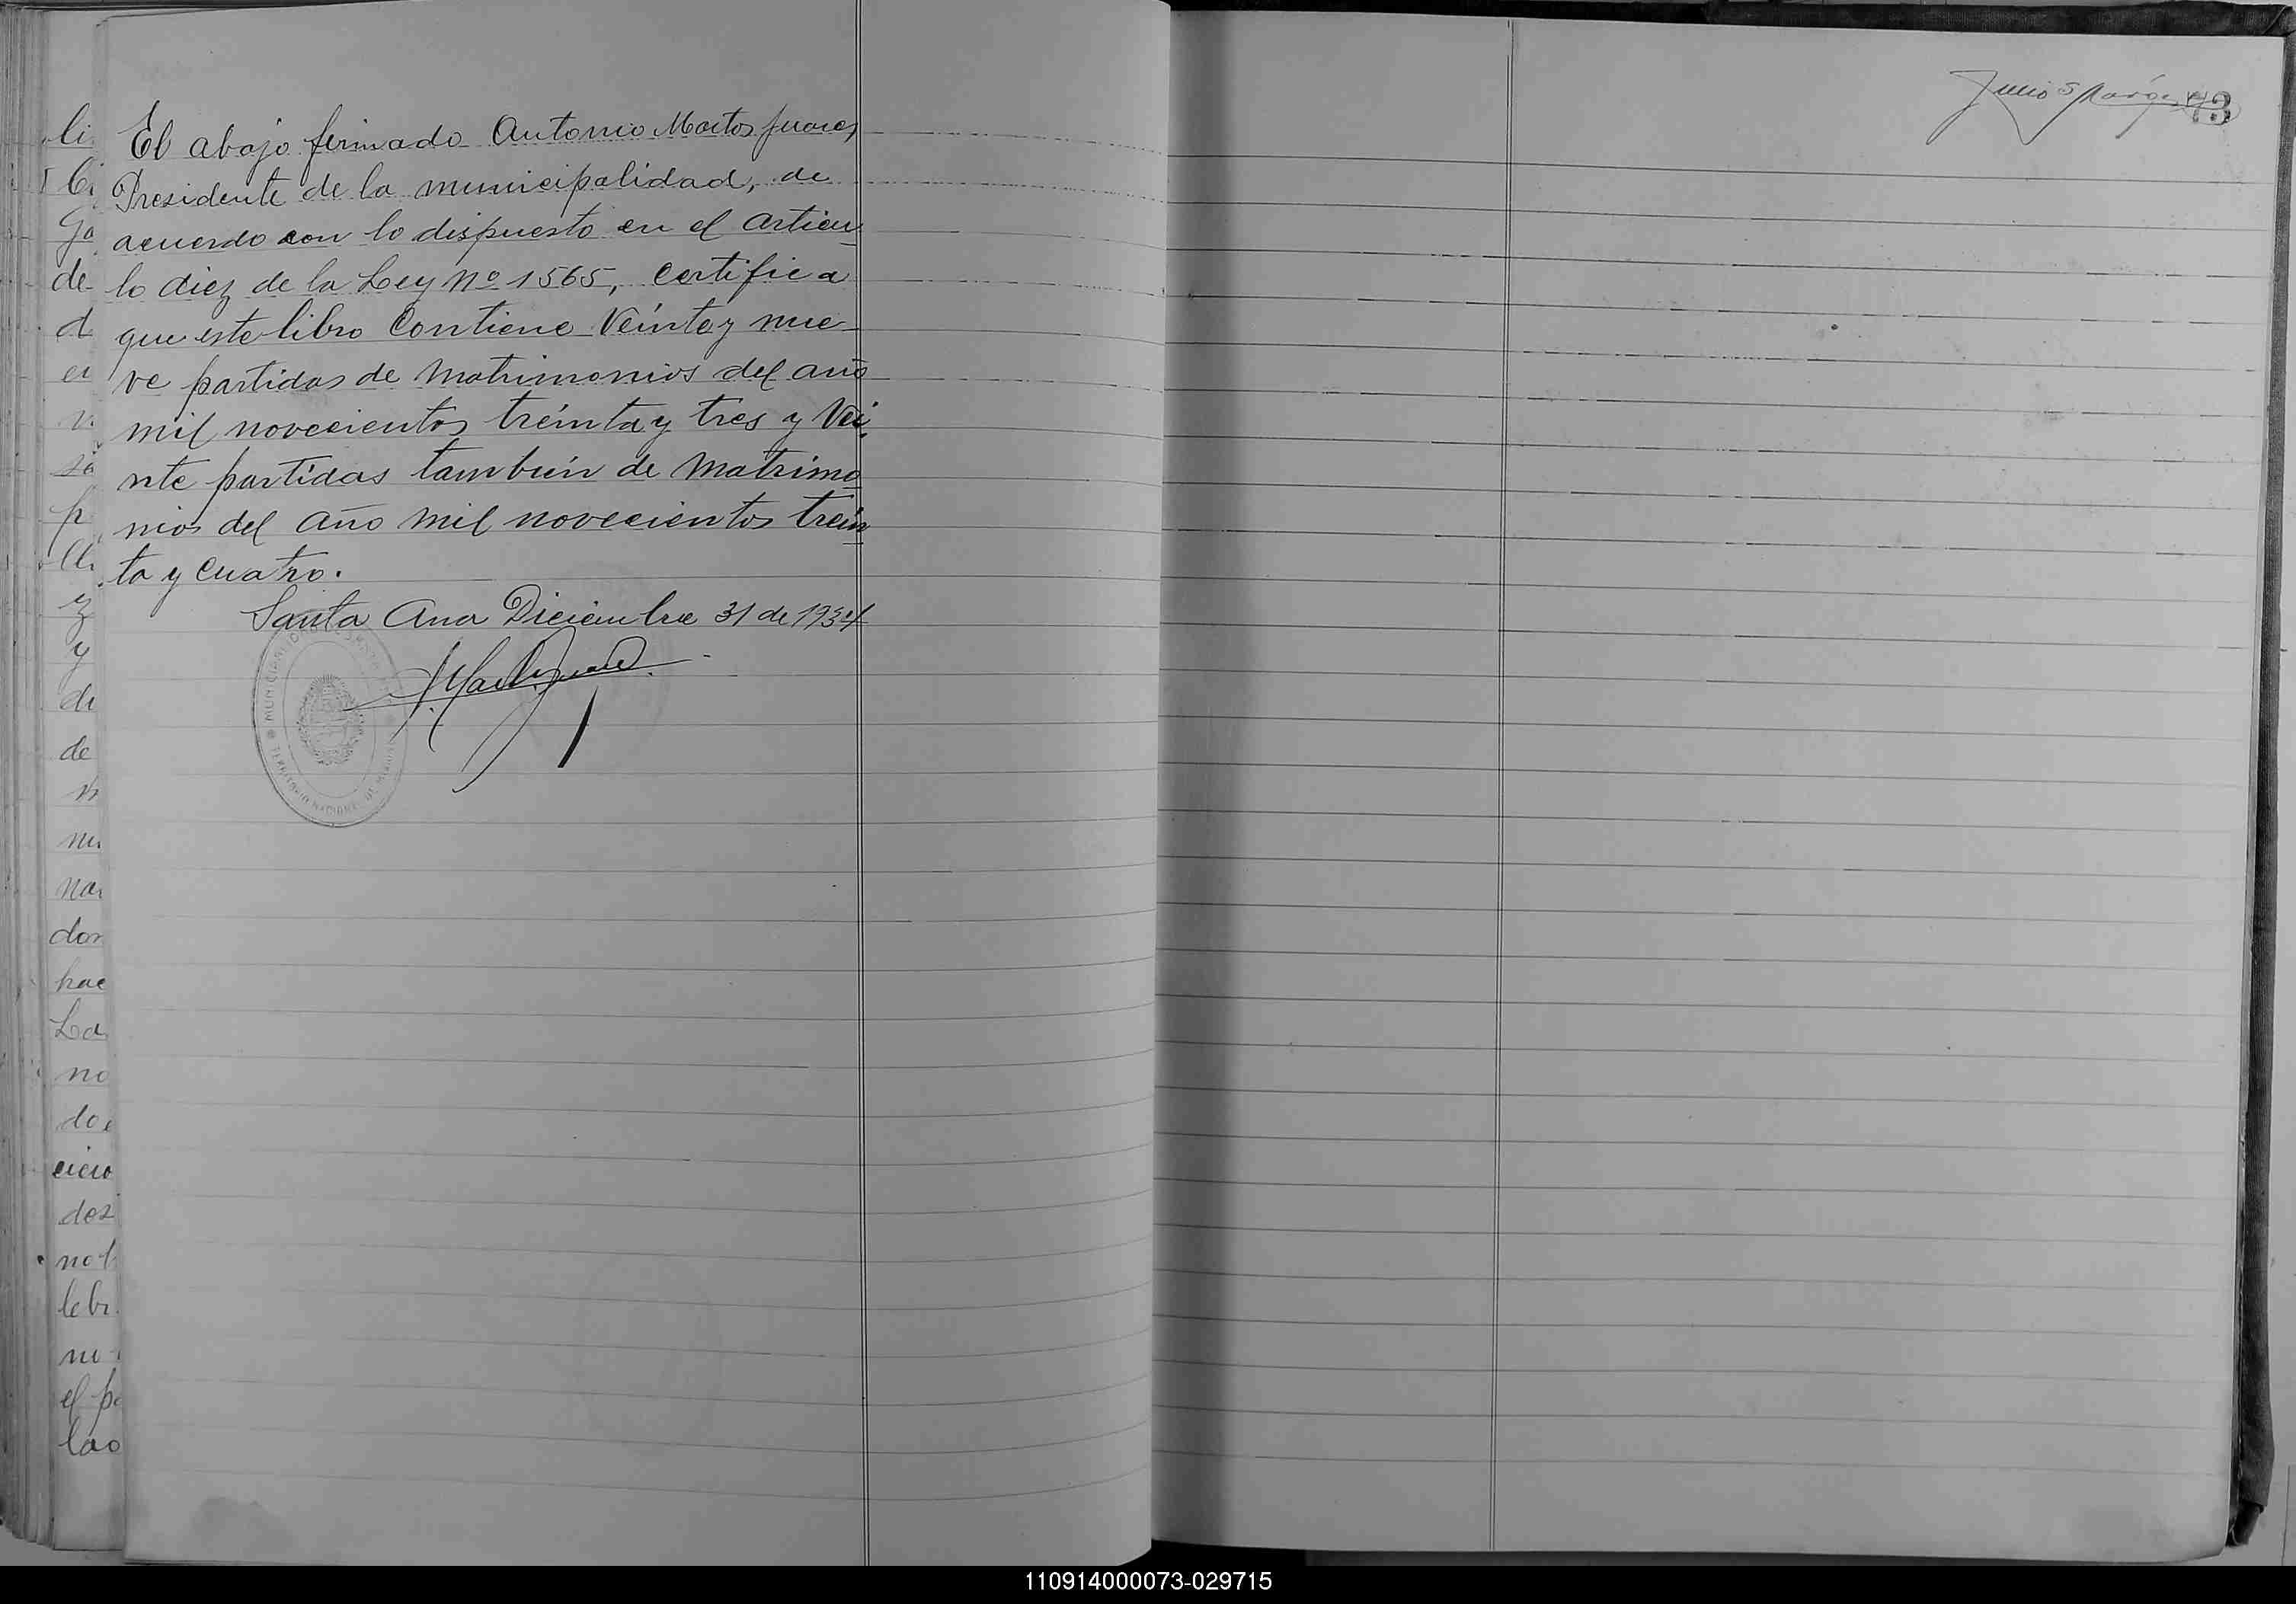 El abajo firmado Antonio Martos Juarez
Presidente de la municipalidad, de
acuerdo con lo dispuesto en el articu
lo diez de la Ley No 1565, certifica
que este libro contiene veinte y nue
ve partidas de matrimonios del año
mil novecientos treinta y tres y vei
nte partidas también de matrimo
nios del año mil novecientos trein
ta y cuatro.
Santa Ana Diciembre 31 de 1934
MUNICIPALIDAD DE SANTA ANA
TERRITORIO NACIONAL DE MISIONES
li
ga
de
d
y
de
na
hac
La
no
lebr
el p
110914000073-029715